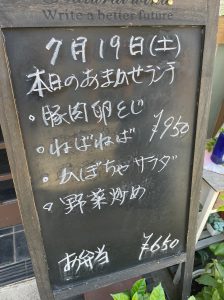 Write a better future
7月19日(土)
本日のおまかせランチ
・豚肉卵とじ
・ねばねば ¥950
・かぼちゃサラダ
・野菜炒め
お弁当 ¥650